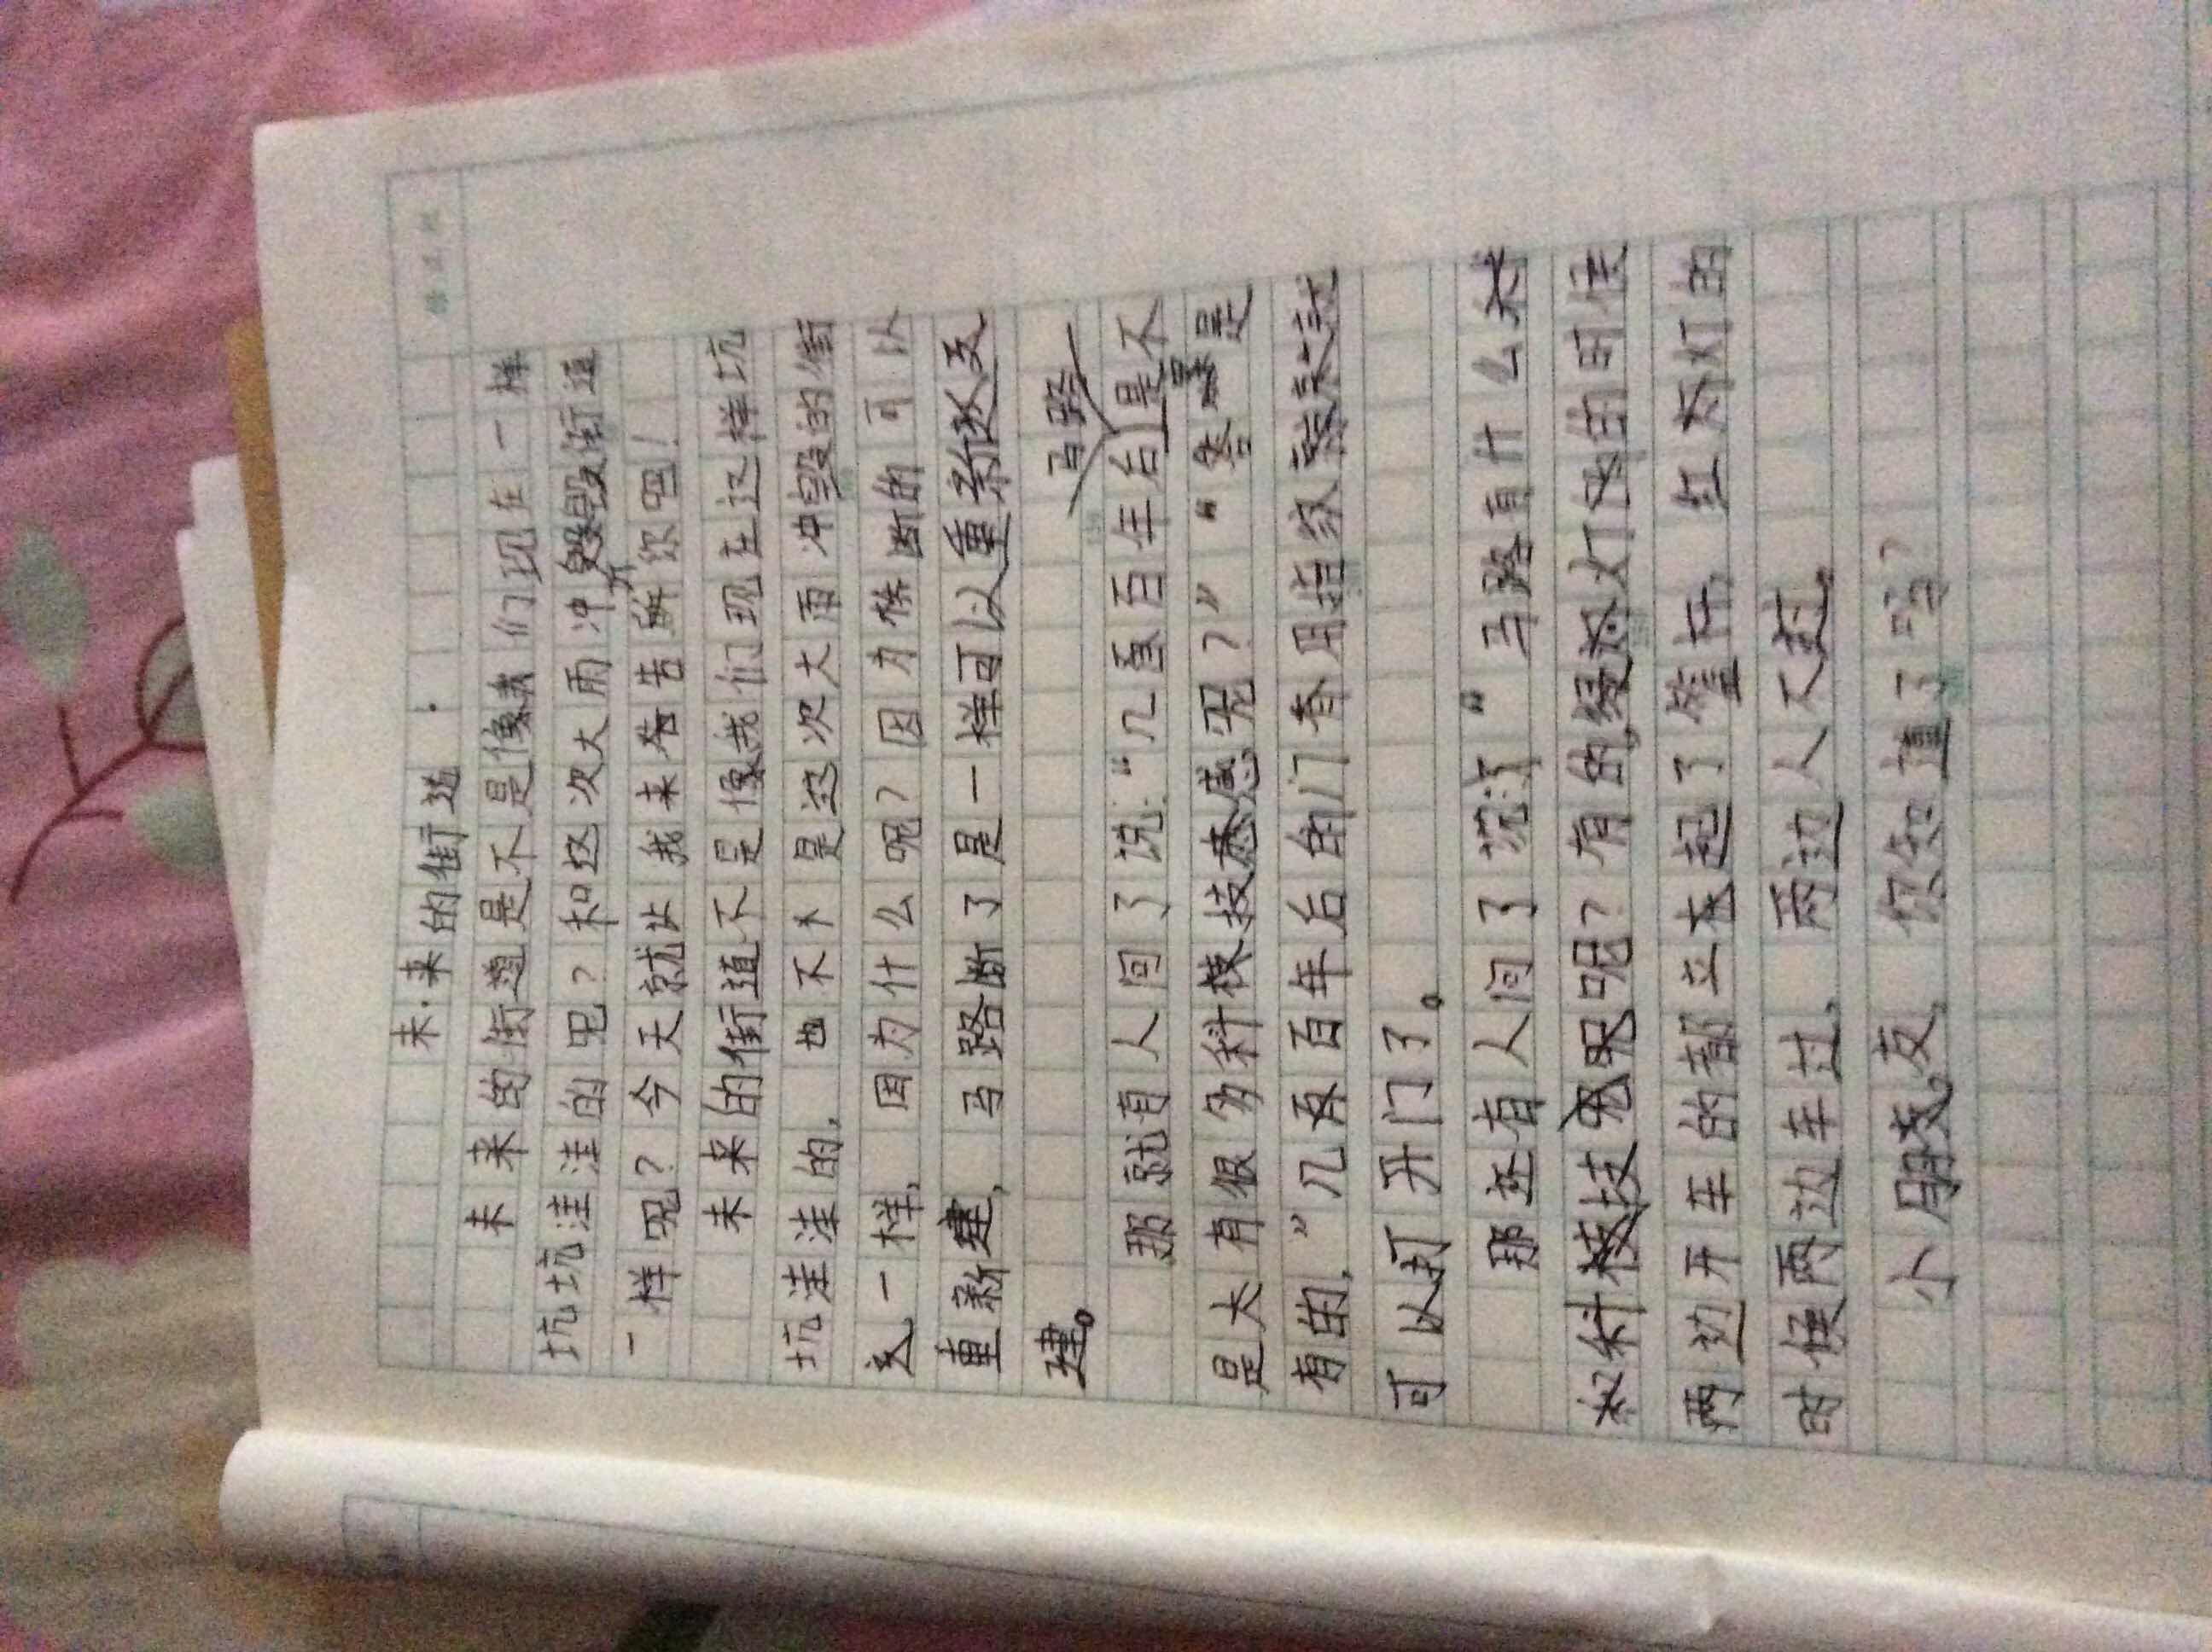 未来的街道
未来的街道是不是像我们现在一样
坑坑洼洼的呢？和这次大雨冲毁街道
一样呢？今天就让我来告诉你吧！
未来的街道不是像我们现在这样坑
坑洼洼的，也不是这次大雨冲毁的街
道一样，因为什么呢？因为断的可以
重新建，马路断了是一样可以重新改建
建。
马路
那就有人问了说：“几百年后是不
是大有很多科技感呢？”“答案是
有的，”几百年后的门春用指
可以打开门了。
那还有人问了说了“马路有什么
科技呢？有的，红灯的时候
两边开车的都立起了
时候两边车过，两边人不过。
小朋友，你知道了吗？